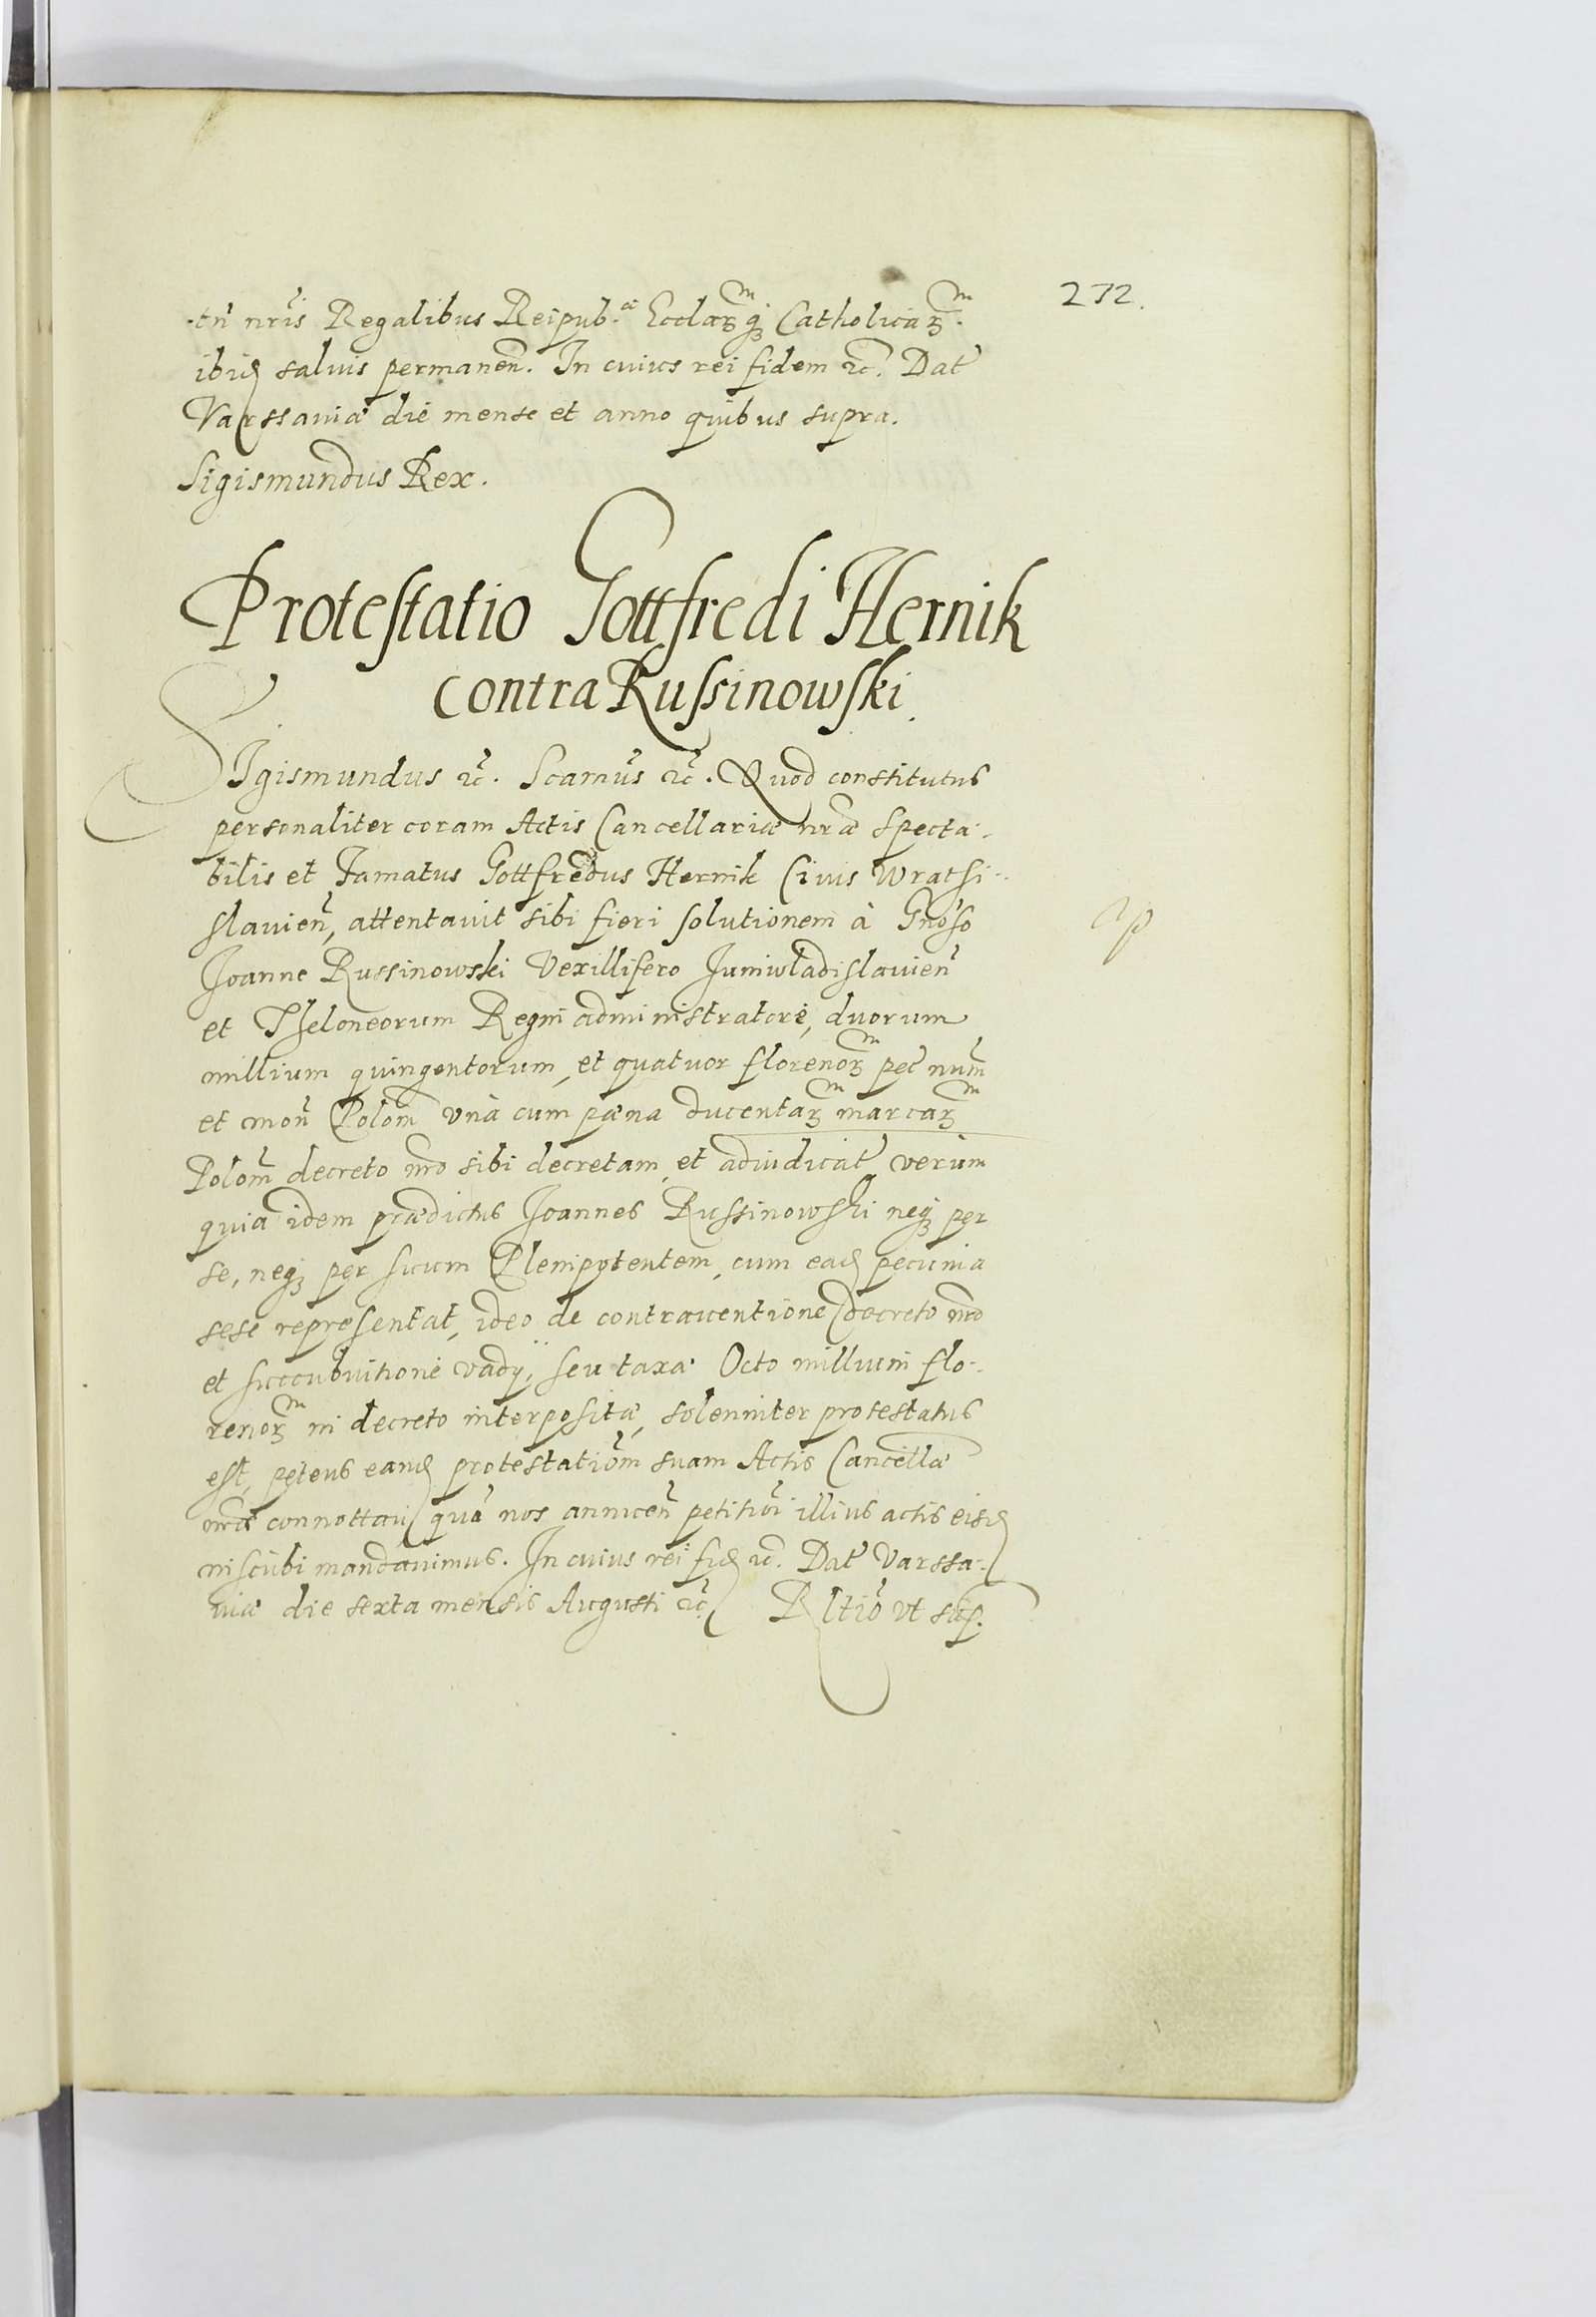 272.
tñ nris Regalibus Reipub.cæ Ecclarꝝ qꝫ Catholicarꝝ.
ibid saluis permanen̄. In cuius rei fidem etc. Dat
Varssauiæ die mense et anno quibus supra.
Sigismundus Rex.
Protestatio Gottfredi Hernik
contra Russinowski.
SIgismundus etc. Scamus etc. Quod constitutus
personaliter coram Actis Cancellariæ nræ specta-
bilis et Famatus Gottfredus Hernik Ciuis Wratsi-
slauien̄, attentauit sibi fieri solutionem à Gnoso
Joanne Russinowski Vexillifero Juniwladislauien̄
et Theloneorum Regni administratore, duorum
millium quingentorum, et quatuor florenorꝝ pec num̄
et mon̄ Polom̄ vnà cum pæna ducentarꝝ marcarꝝ
Polom̄ decreto nro sibi decretam, et adiudicat, verùm
quia idem prædictus Joannes Russinowski neqꝫ per
se, neqꝫ per suum Plenipotentem, cum ead pecunia
sese repræsentat, ideo de contrauentione decreto nro
et succubuitione vadÿ, seu taxæ Octo millium flo-
renorꝝ in decreto interpositæ, solenniter protestatus
est, petens eand protestatiom̄ suam Actis Cancellæ
nræ connottari quà nos annuen̄ petitioi illius actis eisd
inscribi mandauimus. In cuius rei fid etc. Dat Varssa-
uiæ die sexta mensis Augusti etc. Rltio vt sup.